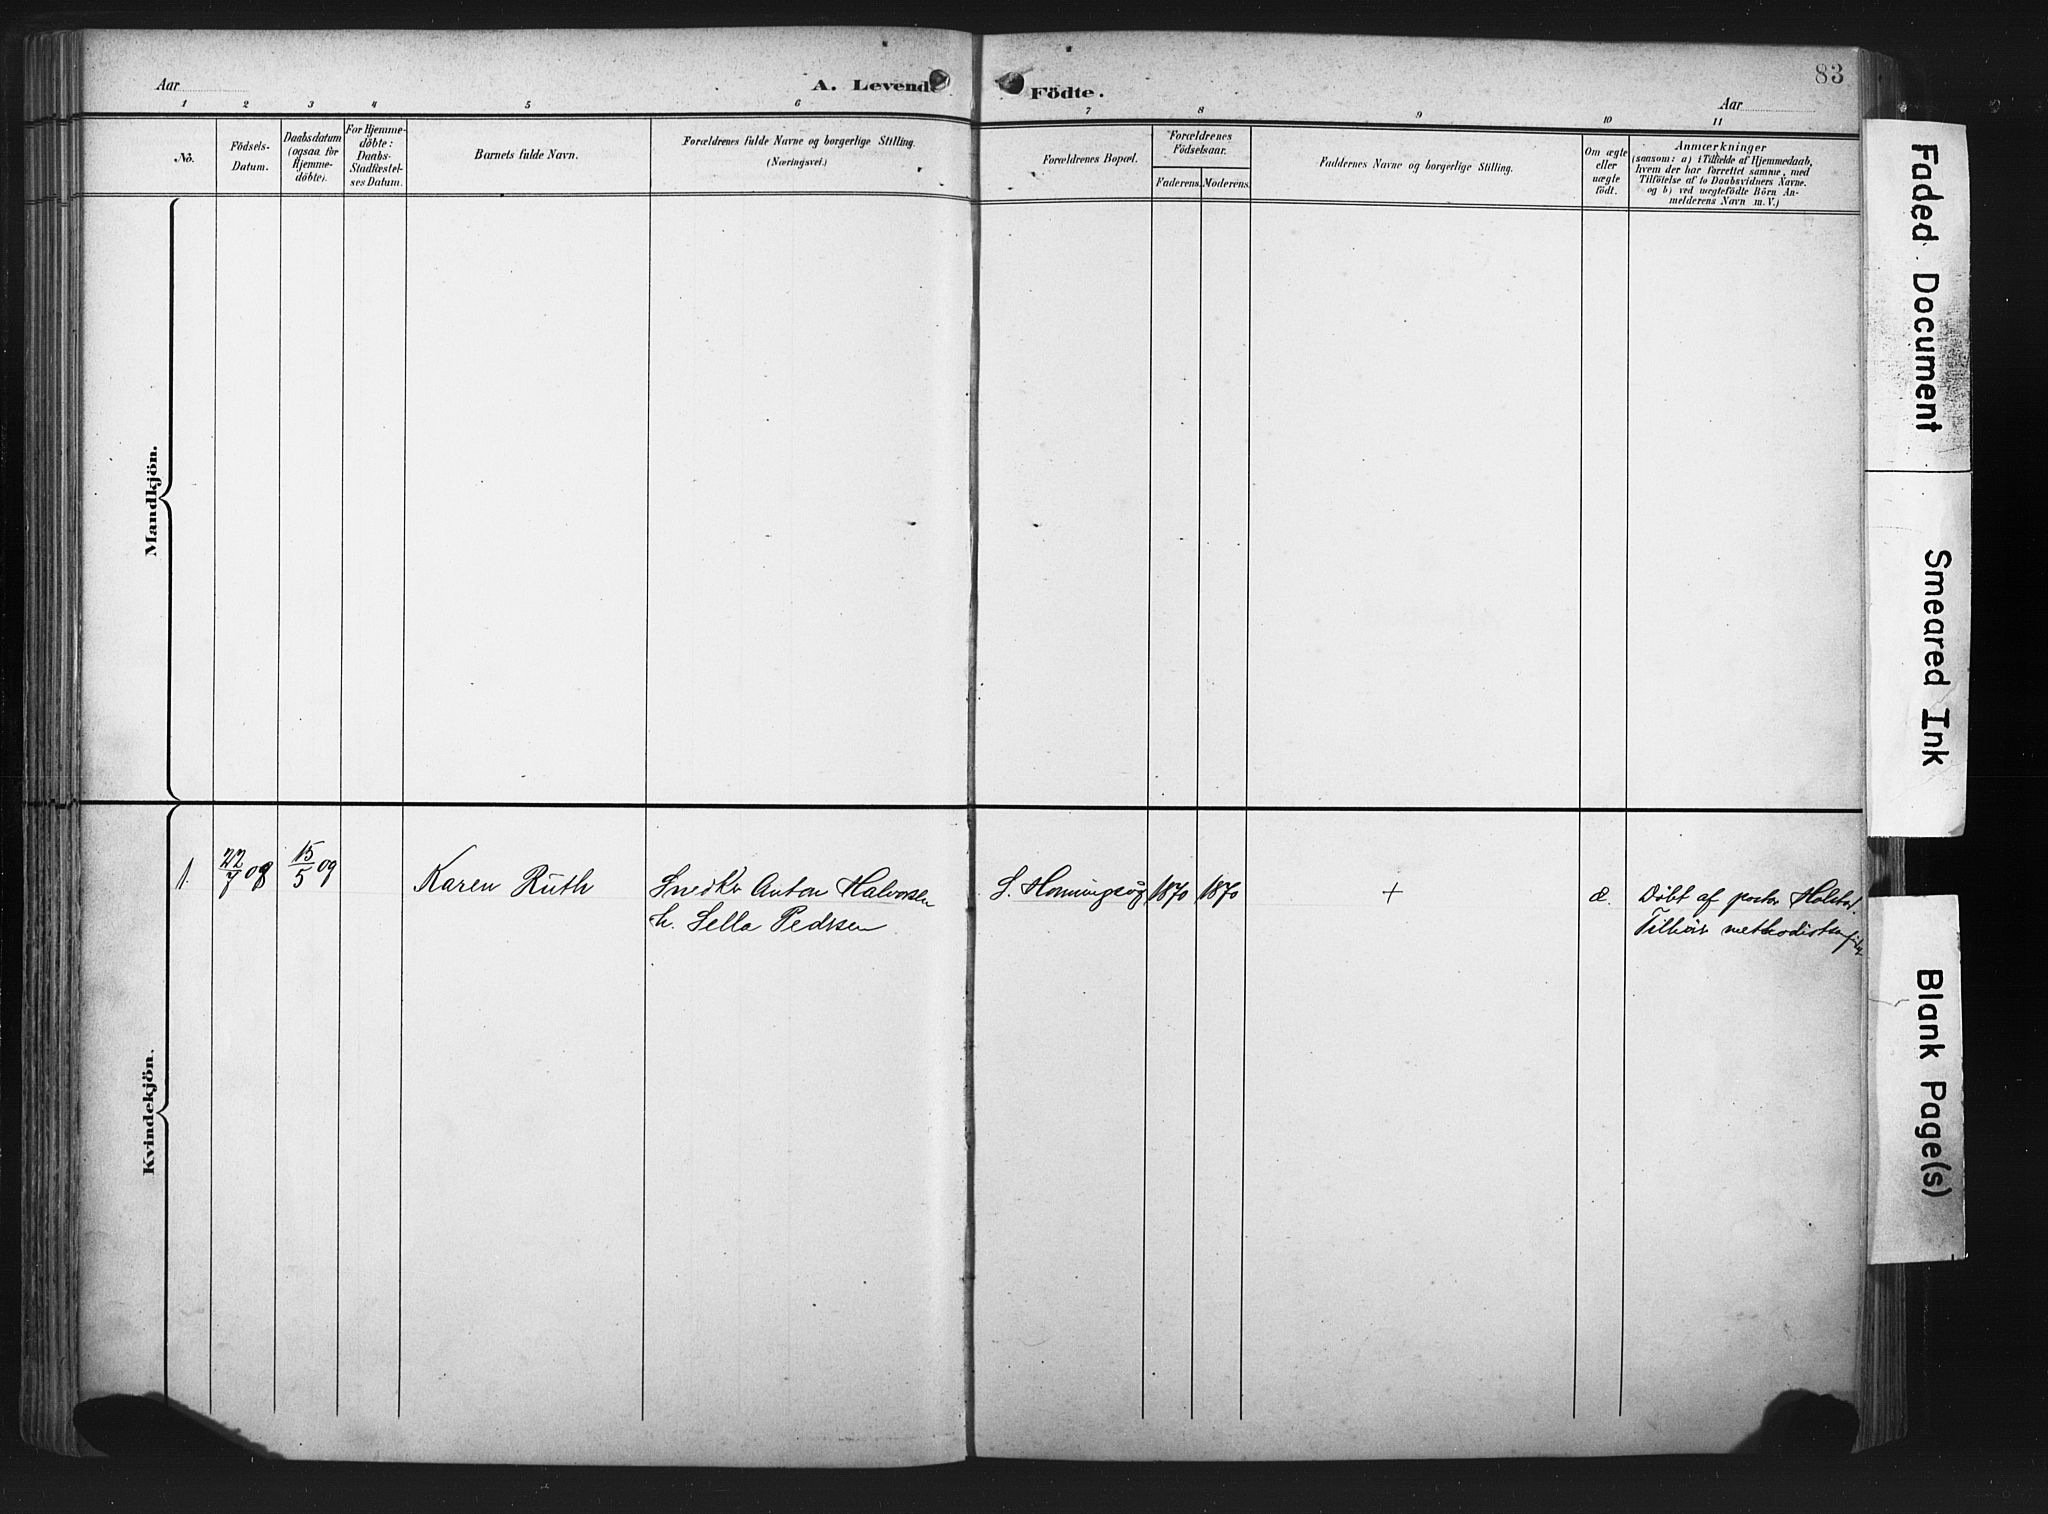 83
Aar
A. Levende
Födte.
Aar
1 2 3 4 5 6 7 8 9 10 11
No.
Födsels-
Datum.
Daabsdatum
(ogsaa for
Hjemme-
döbte).
For Hjemme-
döbte:
Daabs-
Stadfæstel-
ses Datum.
Barnets fulde Navn.
Forældrenes fulde Navne og borgerlige Stilling.
(Næringsvei.)
Forældrenes Bopæl.
Forældrenes
Födselsaar.
Faderens.
Moderens.
Faddernes Navne og borgerlige Stilling.
Om ægte
eller
uægte
födt.
Anmærkninger
(saasom: a) i Tilfælde af Hjemmedaab,
hvem der har forrettet samme, med
Tilföielse af to Daabsvidners Navne.
og b) ved uægtefödte Börn An-
melderens Navn m.V.)
Mandkjön.
Kvindekjön.
1.
22/7 08
15/5 09
Karen Ruth
Snedkr Anton Halvorsen
h. Sella Pedrsen
S. Honningsvåg
1870
1870
+
æ.
Döbt af pastor Holstad.
Tilhör methodisten
Faded Document
Smeared Ink
Blank Page(s)